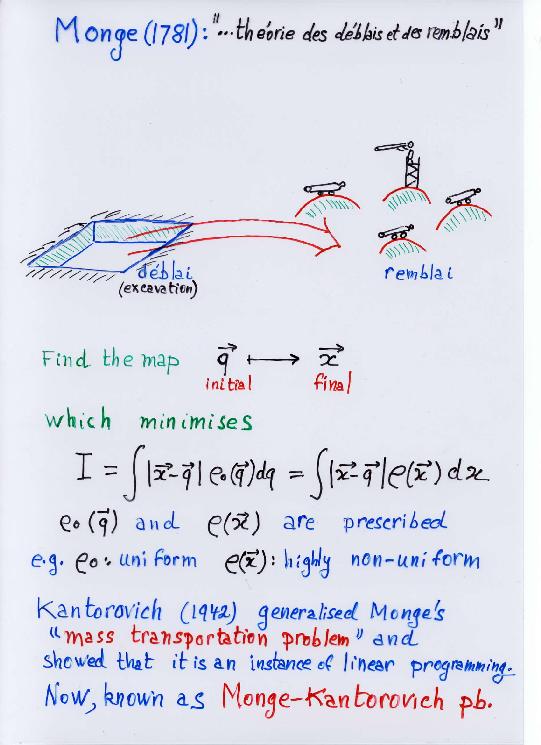 Monge (1781): "...théorie des déblais et des remblais"
déblai
(excavation)
remblai
Find the map q⃗ ⟼ x⃗
initial final
which minimises
I = ∫|x⃗-q⃗| ρ₀(q⃗)dq = ∫|x⃗-q⃗|ρ(x⃗) dx
ρ₀(q⃗) and ρ(x⃗) are prescribed
e.g. ρ₀: uniform ρ(x⃗): highly non-uniform
Kantorovich (1942) generalised Monge's
"mass transportation problem" and
showed that it is an instance of linear programming.
Now, known as Monge-Kantorovich pb.